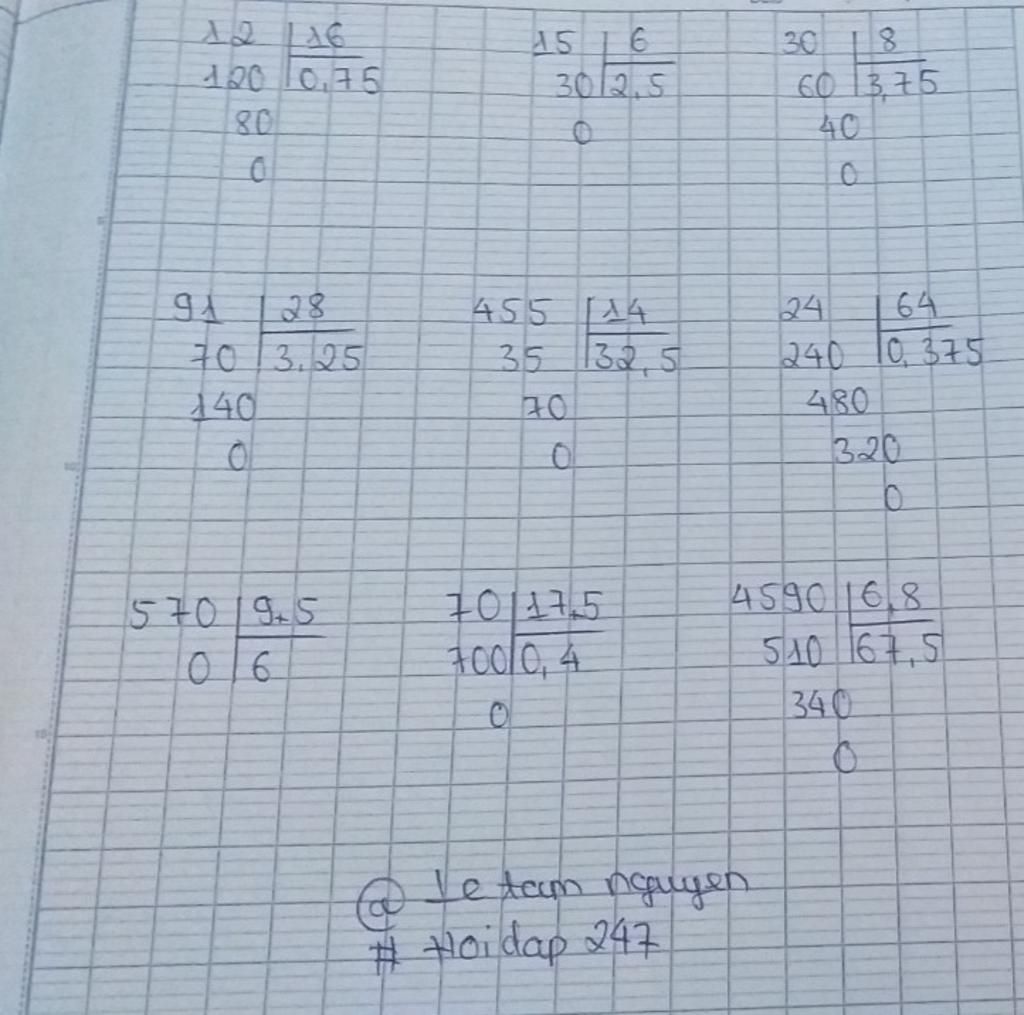 12 16 15 6 30 8
120 0,75 30 2,5 60 3,75
80 0 40
0 0
91 28 455 14 24 64
70 3,25 35 32,5 240 0,375
140 70 480
0 0 320
0
570 9,5 70 17,5 4590 6,8
0 6 700 0,4 510 67,5
0 340
0
@ Le tam nguyen
# Hoidap 247